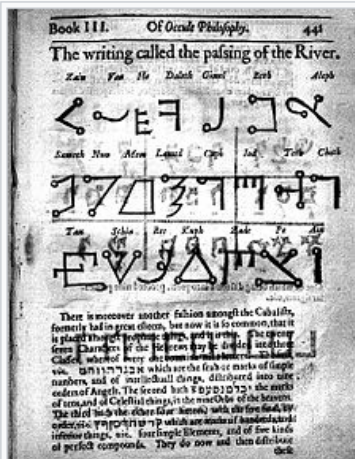 Book III. Of Occult Philosophy. 441
The writing called the passing of the River.
Zain Vau He Daleth Gimel Beth Aleph
Samech Nun Mem Lamed Caph Iod Teth Cheth
Tau Schin Res Kuph Zade Pe Ain
There is moreover another fashion amongst the Cabalists,
formerly had in great esteem, but now it is so common, that it
is placed amongst prophane things, and it is this. The twenty
seven Characters of the Hebrews may be divided into three
Classes, whereof every one
viz. which are the seals or marks of simple
numbers, and of intellectuall things, distributed into nine
orders of Angels. The second hath the marks
of tens, and of Celestial things, in the nine Orbs of the heavens.
The third hath the other four letters, with the five final, by
order, viz. which are marks of hundreds, and
inferior things, viz. four simple Elements, and of five kinds
of perfect compounds. They do now and then distribute
these